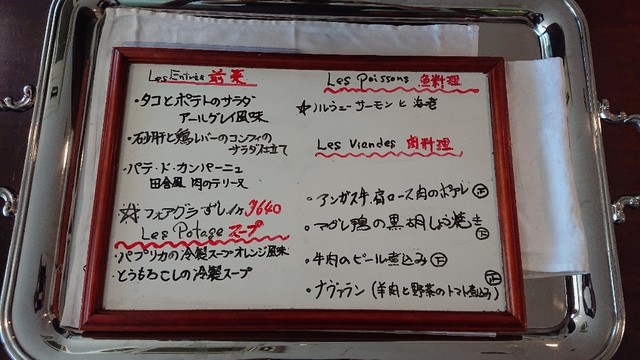 Les Entrée 前菜
・タコとポテトのサラダ
アールグレイ風味
・砂肝と鶏レバーのコンフィの
サラダ仕立て
・パテ・ド・カンパーニュ
田舎風 肉のテリーヌ
☆フォアグラ ずしイ
Les Potage スープ
・パプリカの冷製スープオレンジ風味
・とうもろこしの冷製スープ
Les Poissons 魚料理
☆ノルウェーサーモンと海老
Les Viandes 肉料理
・アンガス牛肩ロース肉のポワレ
・マグレ鴨の黒胡しょう焼き
・牛肉のビール煮込み
・ナヴァラン(羊肉と野菜のトマト煮込み)